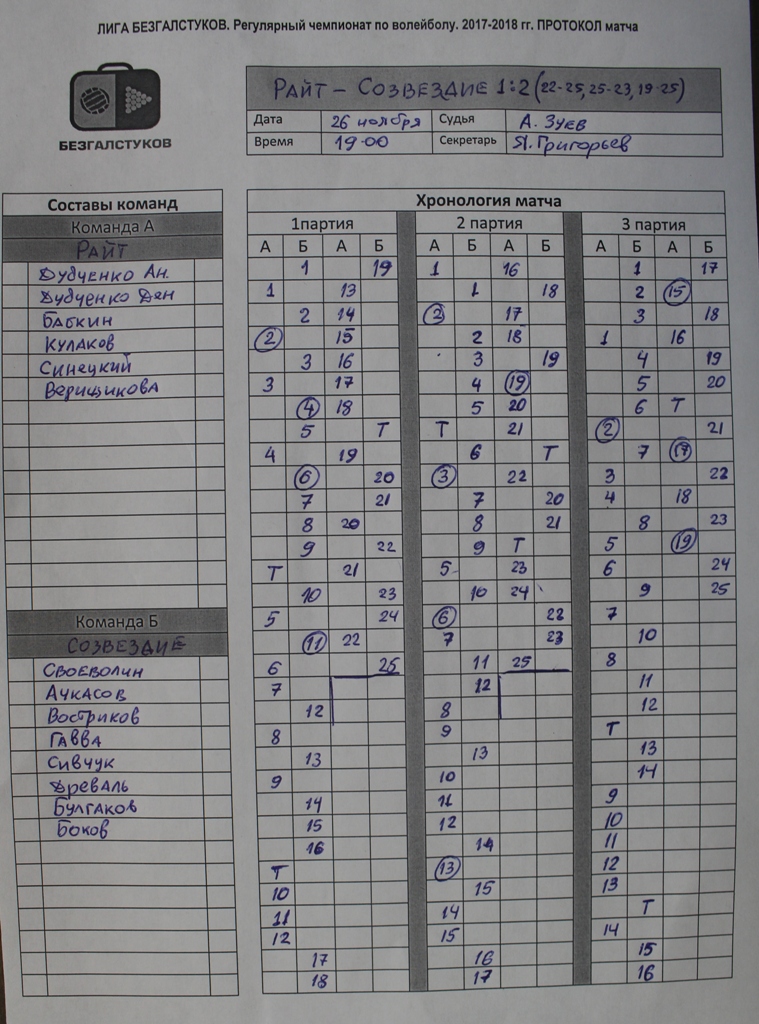 ЛИГА БЕЗГАЛСТУКОВ. Регулярный чемпионат по волейболу. 2017-2018 гг. ПРОТОКОЛ матча
БЕЗГАЛСТУКОВ
РАЙТ – СОЗВЕЗДИЕ 1:2 (22-25, 25-23, 19-25)
Дата 26 ноября Судья А. Зуев
Время 19-00 Секретарь Я. Григорьев
Составы команд
Команда А
РАЙТ
Дубченко Ан.
Дубченко Ден
Бабкин
Кулаков
Синецкий
Верищикова
Команда Б
СОЗВЕЗДИЕ
Своеволин
Ачкасов
Востриков
Гавва
Сивчук
Древаль
Булгаков
Боков
Хронология матча
1партия 2 партия 3 партия
А Б А Б А Б А Б А Б А Б
1 19 1 16 1 17
1 13 1 18 2 15
2 14 2 17 3 18
2 15 2 18 1 16
3 16 3 19 4 19
3 17 4 19 5 20
4 18 5 20 6 Т
5 Т Т 21 2 21
4 19 6 Т 7 17
6 20 3 22 3 22
7 21 7 20 4 18
8 20 8 21 8 23
9 22 9 Т 5 19
Т 21 5 23 6 24
10 23 10 24 9 25
5 24 6 22 7
11 22 7 23 10
6 25 11 25 8
7 12 11
12 8 12
8 9 Т
13 13 13
9 10 14
14 11 9
15 12 10
16 14 11
Т 13 12
10 15 13
11 14 Т
12 15 14
17 16 15
18 17 16